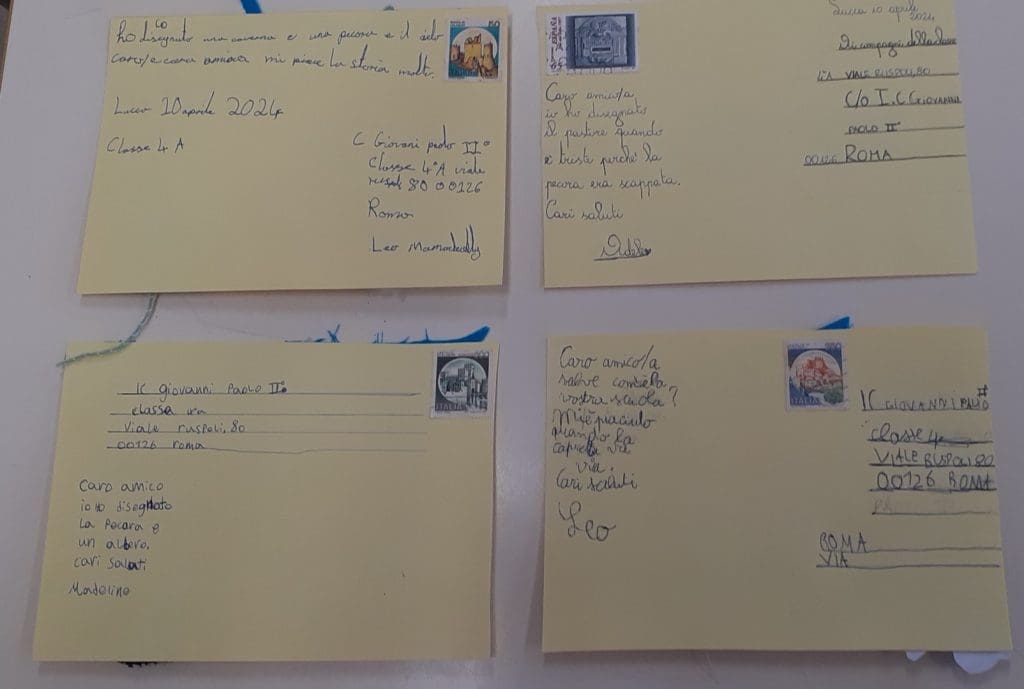 ho disegnato una caverna e una pecora e il cielo
caro/e cara amica mi piace la storia molto.
Lucca 10 aprile 2024
Classe 4 A
C Giovani paolo II°
Classe 4°A viale
80 00126
Roma
Leo
50
ITALIA
Lucca 10 aprile
2024
Ai compagni della classe
VIALE RUSPOLI, 80
C/O I.C GIOVANNI
PAOLO II°
00126 ROMA
ESPAÑA
Caro amico/a
io ho disegnato
il pastore quando
è triste perchè la
pecora era scappata.
Cari saluti
Adele
IC giovanni PAOLO II°
classe
Viale ruspoli, 80
00126 roma
ITALIA
caro amico
io ho disegnato
La Pecora e
un albero.
cari saluti
Madeline
Caro amico/a
salve com'è la
vostra scuola?
Mi è piaciuto
quando la
capretta va
via.
Cari saluti
Leo
ITALIA
IC GIOVANNI PAOLO II
classe 4
VIALE RUSPOLI 80
00126 ROMA
ROMA
VIA